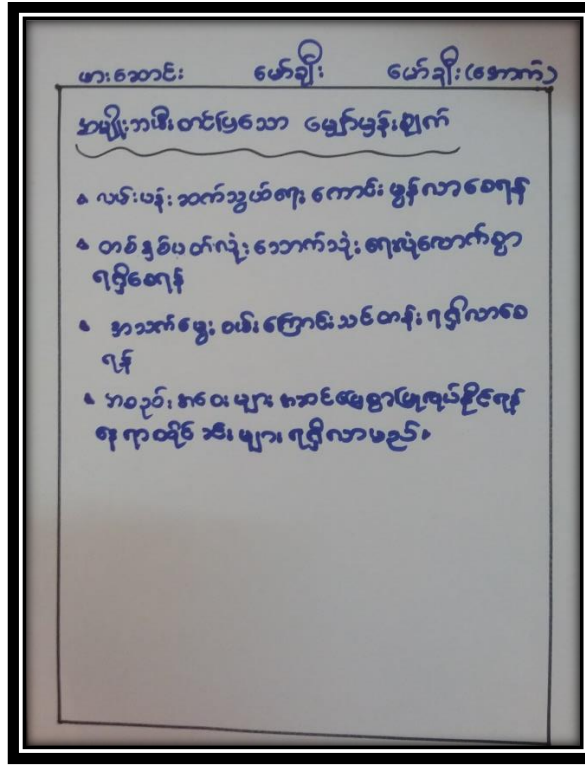 ဖားဆောင်း မော်ချီး မော်ချီး(အောက်)
အမျိုးသမီးတင်ပြသော မျှော်မှန်းချက်
လမ်းပန်း ဆက်သွယ်ရေး ကောင်း မွန်လာစေရန်
တစ်နှစ်ပတ်လုံး သောက်သုံး ရေလုံလောက်စွာ
ရရှိစေရန်
အသက်မွေး ဝမ်းကြောင်းသင်တန်း ရရှိလာစေ
ရန်
အစည်း အဝေး များ အဆင်ပြေစွာပြုလုပ်နိုင်ရန်
နေရာထိုင် ခင်း များ ရရှိလာမည်။